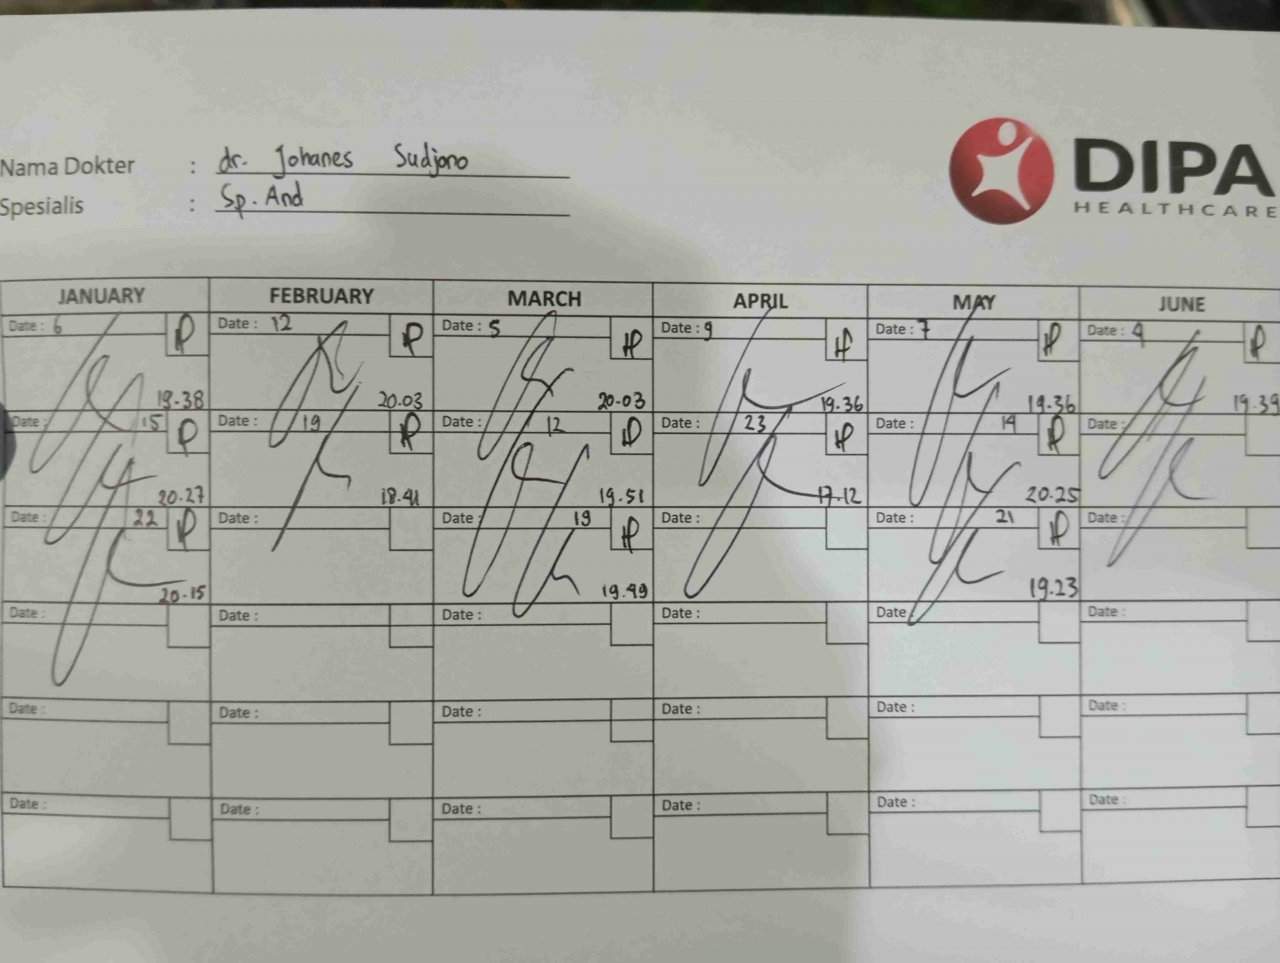 Nama Dokter : dr. Johanes Sudjono
Spesialis : Sp. And
DIPA
HEALTHCARE
JANUARY FEBRUARY MARCH APRIL MAY JUNE
Date : 6 P Date : 12 P Date : 5 Date : 9 Date : 7 Date : 4 P
19.38 20.03 20.03 19.36 19.36 19.39
Date : 15 P Date : 19 Date : 12 Date : 23 Date : 14 P Date :
20.27 18.41 19.51 17.12 20.25
Date : 22 P Date : Date : 19 Date : Date : 21 Date :
20.15 19.49 19.23
Date : Date : Date : Date : Date : Date :
Date : Date : Date : Date : Date : Date :
Date : Date : Date : Date : Date : Date :